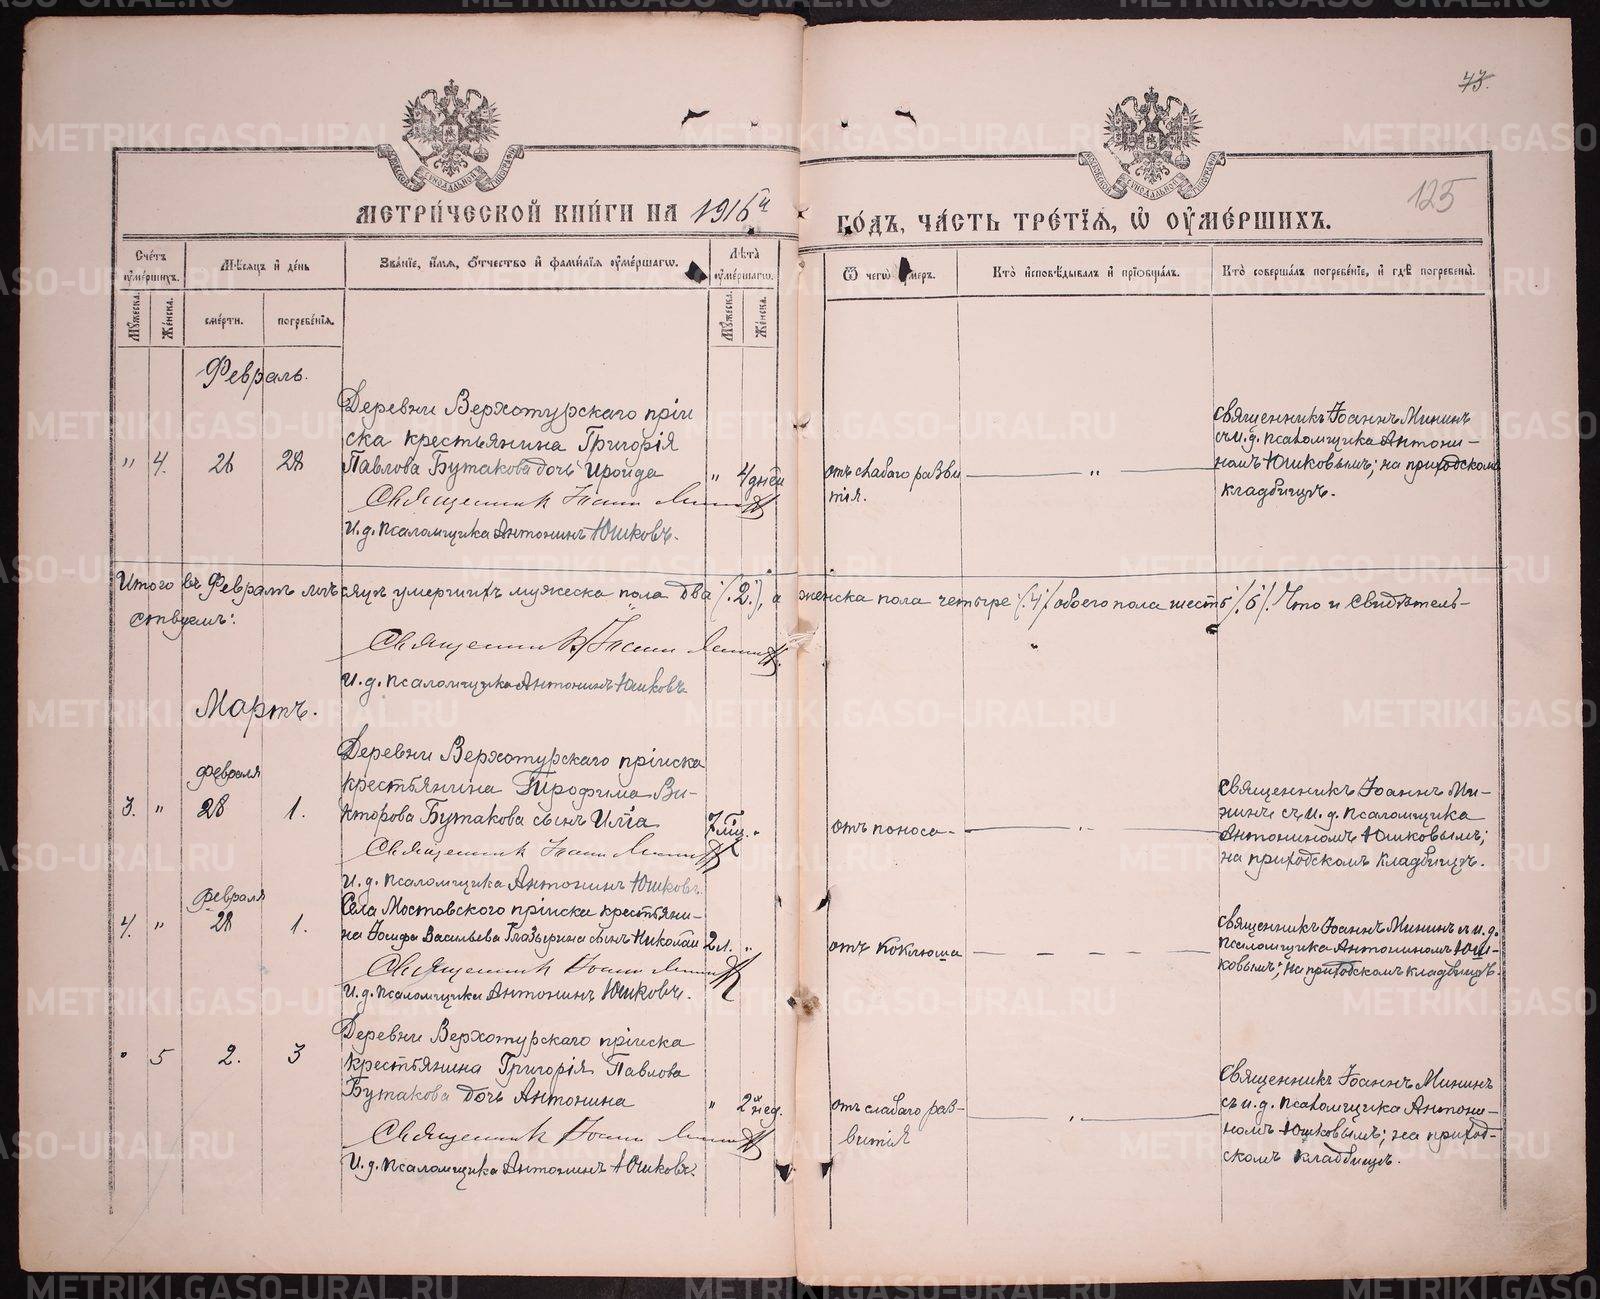 75.
125
МЕТРИ́ЧЕСКОЙ КНИ́ГИ НА 1916й ГО́ДЪ, ЧА́СТЬ ТРЕ́ТІѦ, Ѡ ОУ҆МЕ́РШИХЪ.
Сче́тъ оу҆ме́ршихъ.
Мѣ́сяцъ и҆ де́нь
Зва́ніе, и҆́мя, ѻ҆́тчество и҆ фами́лія оу҆ме́ршагѡ.
Лѣ́та оу҆ме́ршагѡ.
Ѿ чегѡ̀ оу҆́меръ.
Кто̀ и҆сповѣ́дывалъ и҆ прїѡбща́лъ.
Кто̀ соверша́лъ погребе́нїе, и҆ гдѣ̀ погребены̀.
Мꙋ́жеска.
Же́нска.
сме́рти.
погребе́нїя.
Мꙋ́жеска.
Же́нска.
Февраль.
Деревни Верхотурскаго пріи
ска крестьянина Григорія
" 4. 26 28 Павлова Бутакова дочь Ироида " 4 дней
Священник Іоанн Минин
И.д. псаломщика Антонинъ Юшковъ.
отъ слабаго разви
тія.
"
священникъ Іоаннъ Мининъ
съ и.д. псаломщика Антони-
номъ Юшковымъ; на приходскомъ
кладбищѣ.
Итого въ Февралѣ мѣсяцѣ умершихъ мужеска пола два /.2./, а женска пола четыре /.4./ обоего пола шесть /.6./. Что и свидѣтель-
ствуемъ:
Священник Іоанн Минин
И.д. псаломщика Антонинъ Юшковъ
Мартъ.
Деревни Верхотурскаго пріиска
февраля
крестьянина Трофима Ви-
3. " 28 1. кторова Бутакова сынъ Илія 7 мц. "
Священник Іоанн Минин
И.д. псаломщика Антонинъ Юшковъ
отъ поноса
священникъ Іоаннъ Ми-
нинъ съ и.д. псаломщика
Антониномъ Юшковымъ;
на приходскомъ кладбищѣ.
февраля
Села Мостовского пріиска крестьяни-
4. " 28 1. на Іосифа Васильева Глазырина сынъ Николай 2 л. "
Священник Іоанн Минин
И.д. псаломщика Антонинъ Юшковъ.
отъ коклюша
священникъ Іоаннъ Мининъ съ и.д.
псаломщика Антониномъ Юш-
ковымъ; на приходскомъ кладбищѣ.
Деревни Верхотурскаго пріиска
" 5 2. 3 крестьянина Григорія Павлова
Бутакова дочь Антонина " 2 нед.
Священник Іоанн Минин
И.д. псаломщика Антонинъ Юшковъ.
отъ слабаго раз-
витія
"
священникъ Іоаннъ Мининъ
съ и.д. псаломщика Антони-
номъ Юшковымъ; на приход-
скомъ кладбищѣ.
METRIKI.GASO-URAL.RU